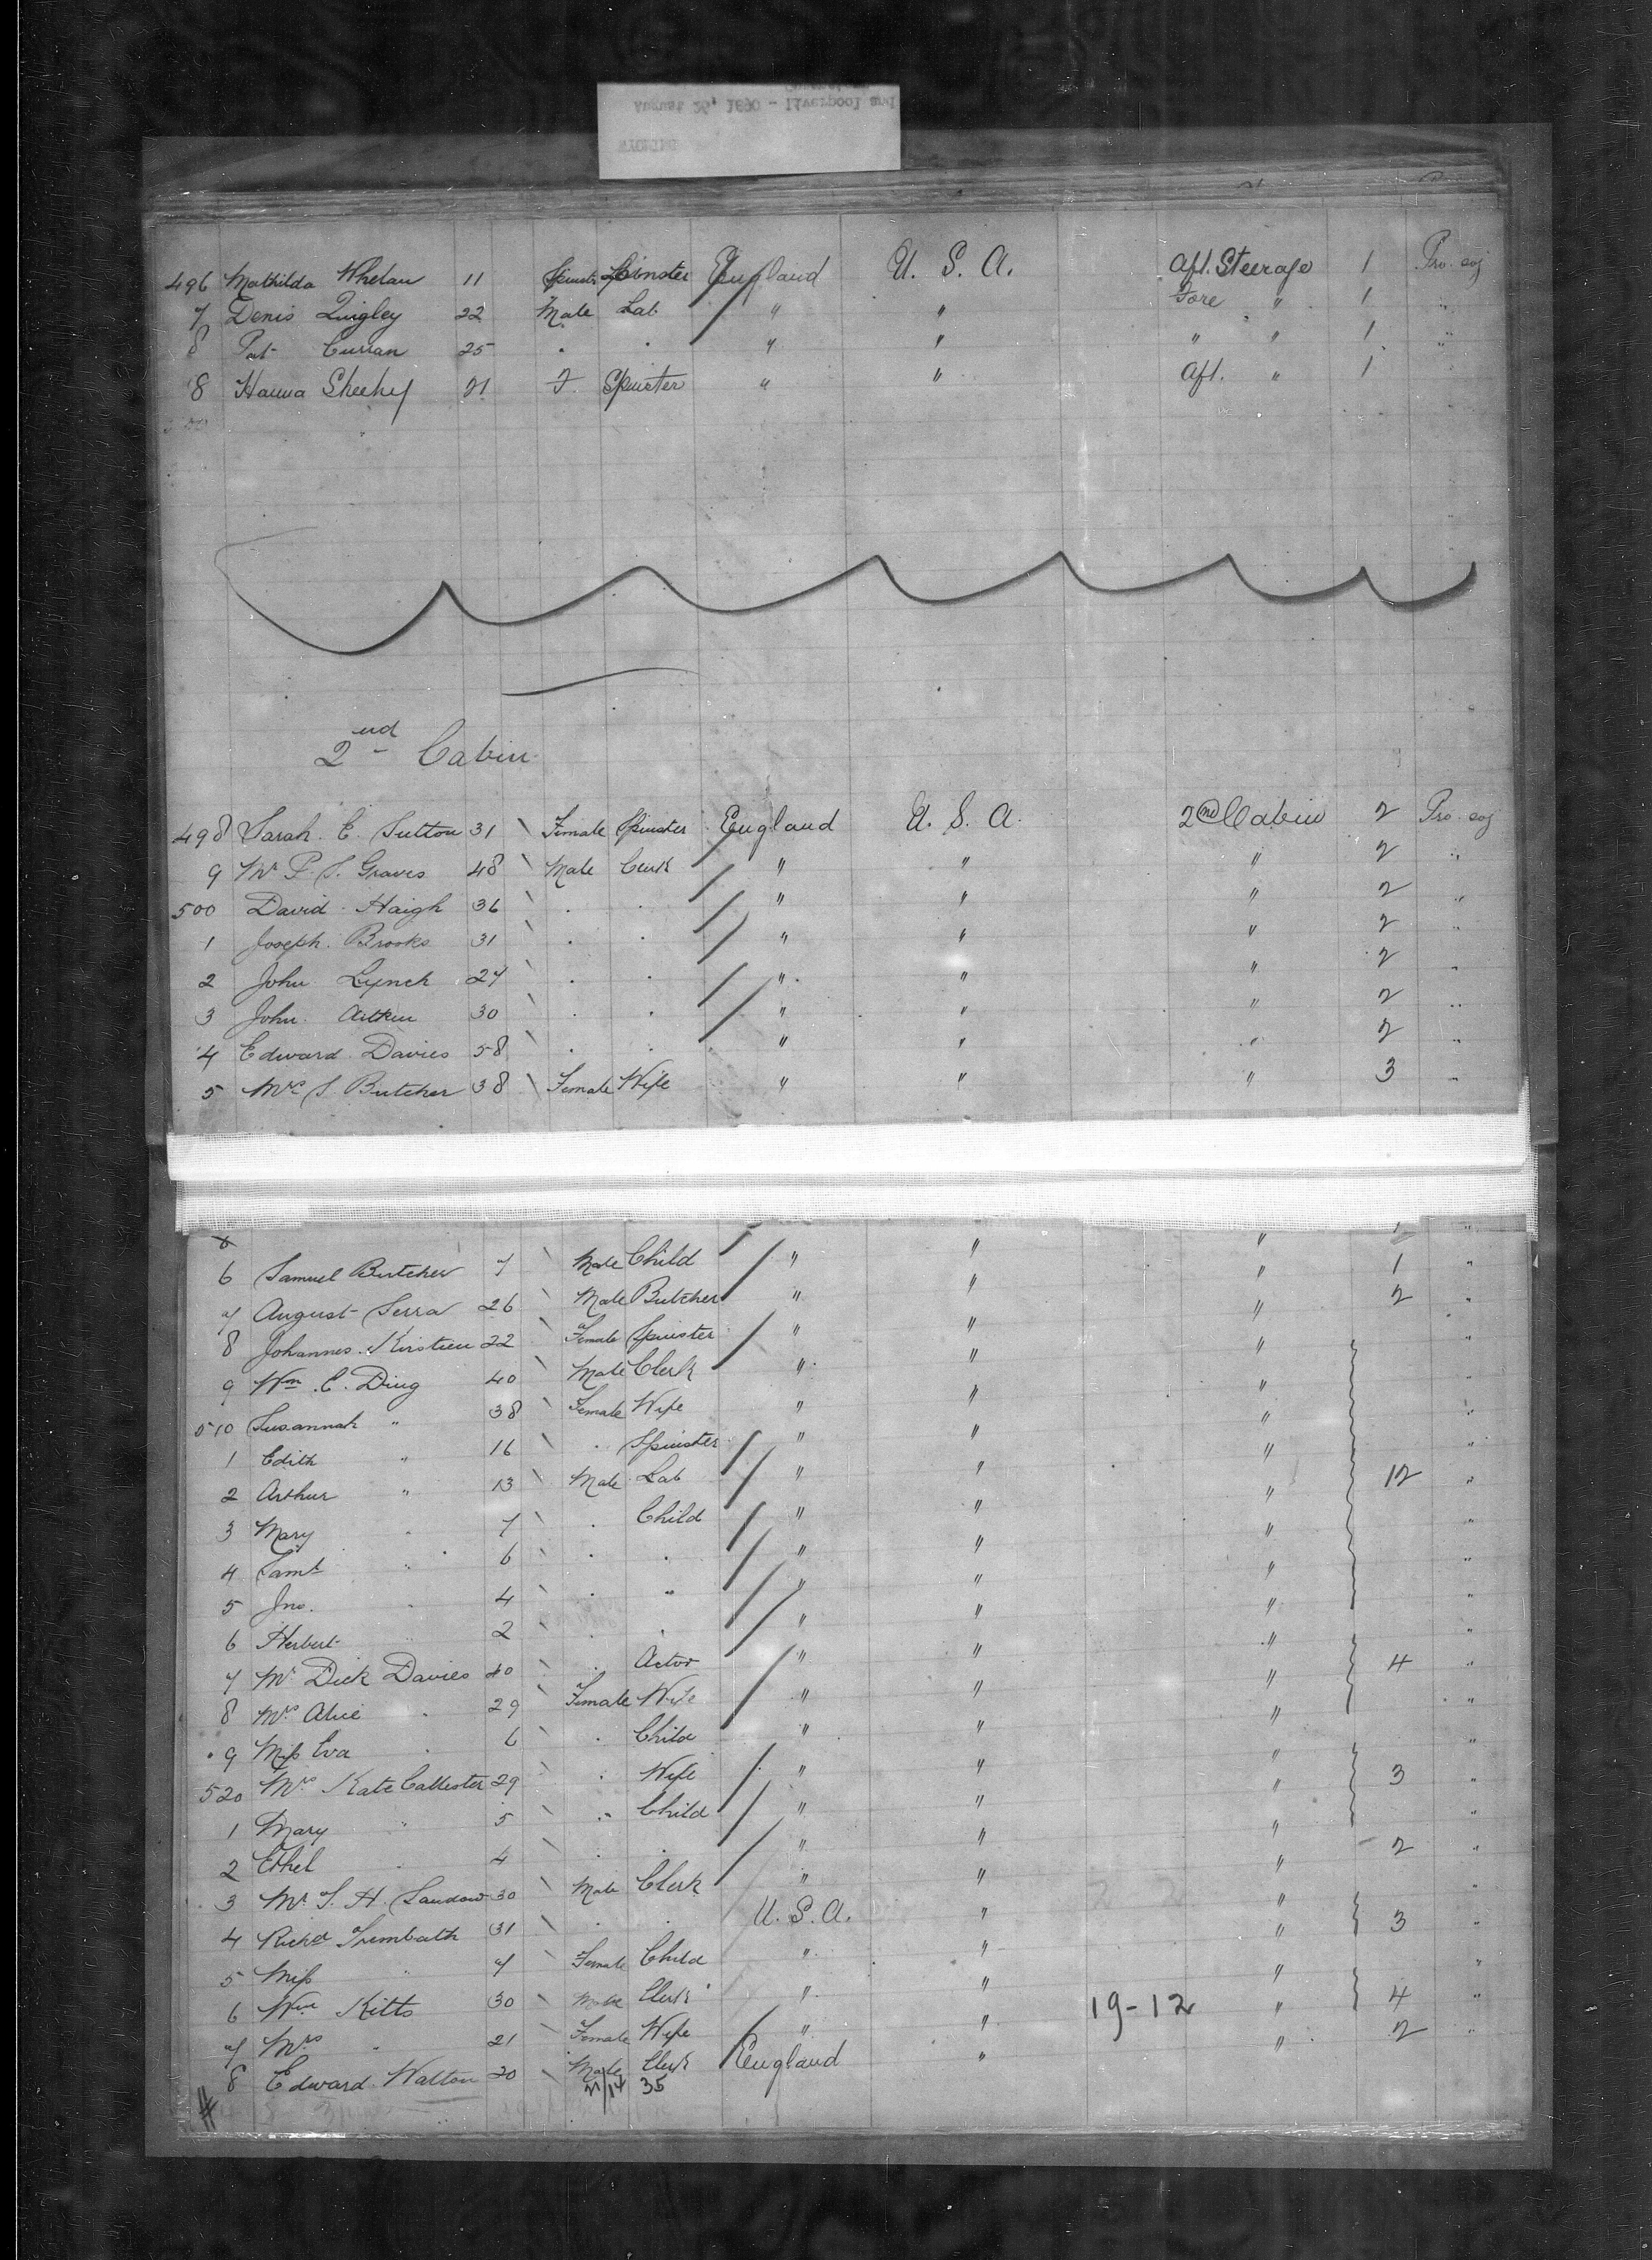 August 26, 1890 - Liverpool and
WYOMING
496 Mathilda Whelan 11 Spinster England U. S. A. Aft. Steerage 1 Pro. soj
7 Denis Quigley 22 Male Lab " " Fore " 1 "
8 Pat Curran 25 " " " " " " 1 "
8 Hanna Sheehy 21 F Spinster " " Aft. " 1 "
2nd Cabin
498 Sarah E. Sutton 31 Female Spinster England U. S. A. 2nd Cabin 2 Pro. soj
9 Mr P. S. Graves 48 Male Clerk " " " 2 "
500 David Haigh 36 " " " " " 2 "
1 Joseph Brooks 31 " " " " " 2 "
2 John Lynch 27 " " " " " 2 "
3 John Aitken 30 " " " " " 2 "
4 Edward Davies 58 " " " " " 2 "
5 Mrs S Butcher 38 Female Wife " " " 3 "
6 Samuel Butcher 7 Male Child " " " 1 "
7 August Serra 26 Male Butcher " " " 2 "
8 Johannes Kirstien 22 Female Spinster " " " "
9 Wm. C. Ding 40 Male Clerk " " " "
510 Susannah " 38 Female Wife " " " "
1 Edith " 16 " Spinster " " " "
2 Arthur " 13 Male Lab " " " 12 "
3 Mary " 7 " Child " " " "
4 Saml " 6 " " " " " "
5 Jno. " 4 " " " " " "
6 Herbert " 2 " " " " " "
7 Mr Dick Davies 40 " Actor " " " 4 "
8 Mrs Alice " 29 Female Wife " " " "
9 Miss Eva " 6 " Child " " " "
520 Mrs Kate Callister 29 " Wife " " " 3 "
1 Mary " 5 " Child " " " "
2 Ethel " 4 " " " " " 2 "
3 Mr S. H. Sandow 30 Male Clerk " " " "
4 Richd Trembath 31 " " U. S. A. " " 3 "
5 Miss " 7 Female Child " " " "
6 Wm Kitts 30 Male Clerk " " " 4 "
7 Mrs " 21 Female Wife " " 19-12 " 2 "
8 Edward Walton 20 Male Clerk England " "
21/14 35